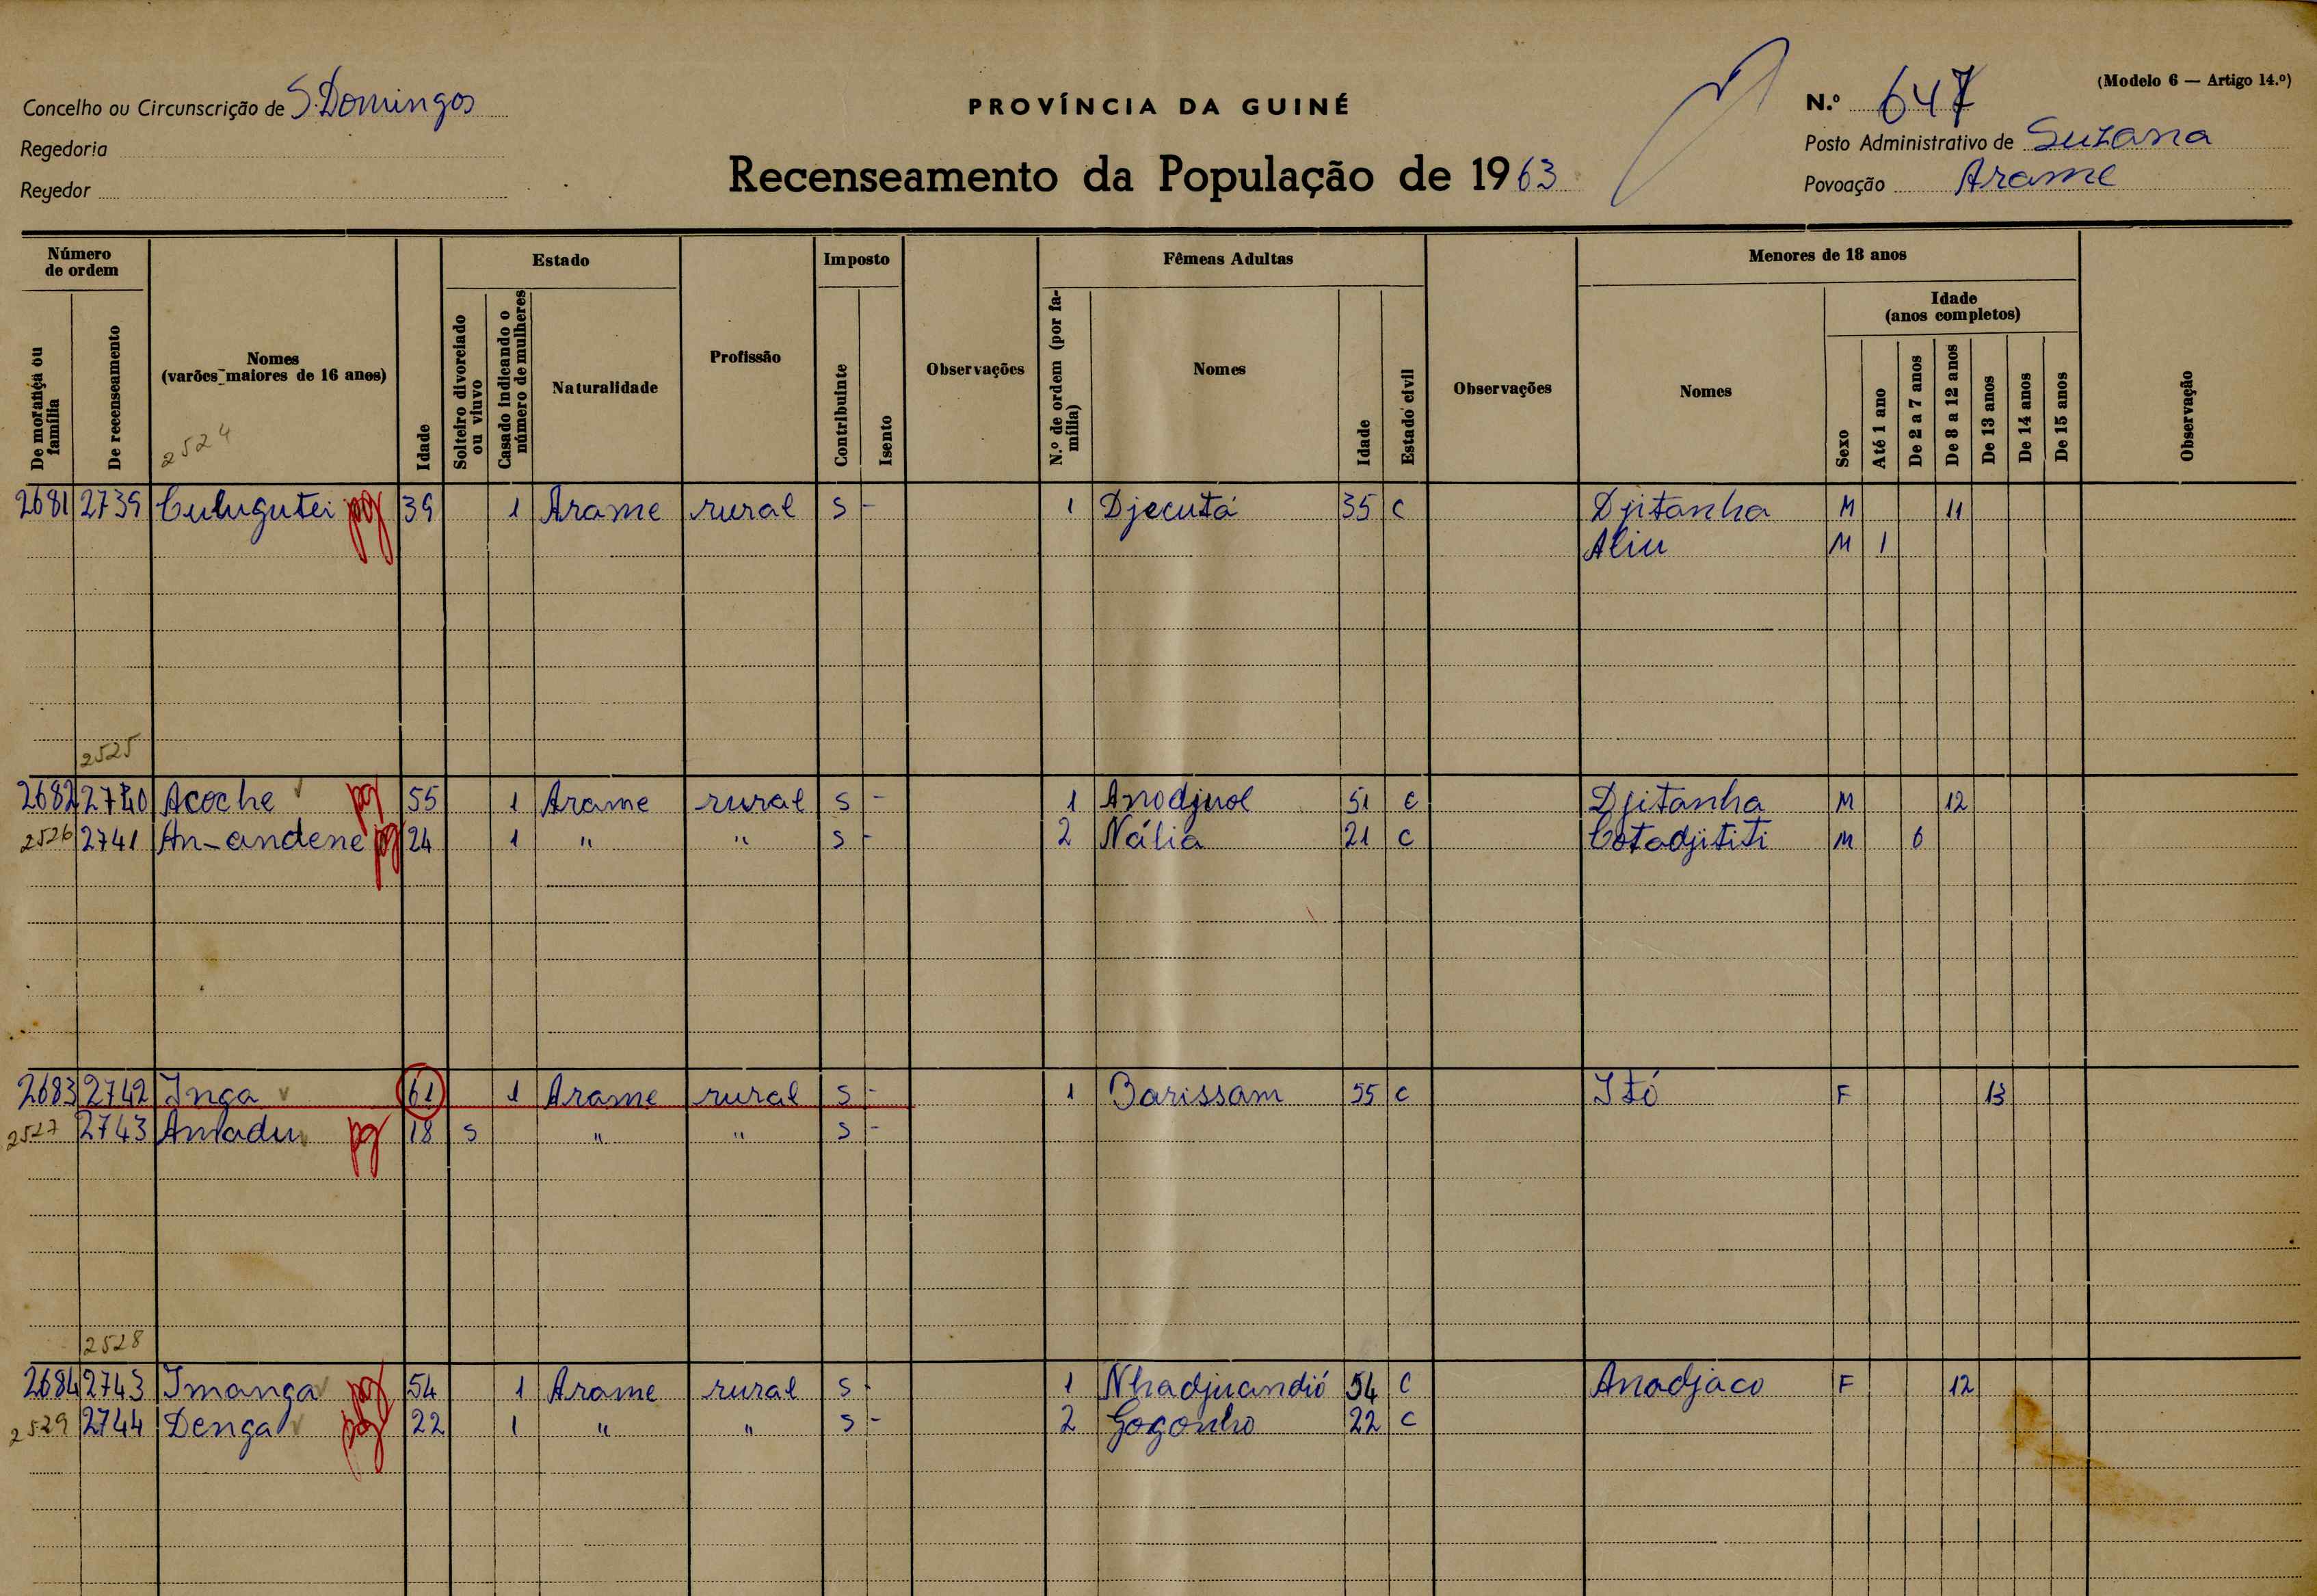 (Modelo 6 — Artigo 14.º)
Concelho ou Circunscrição de S. Domingos
PROVÍNCIA DA GUINÉ
N.º 647
Regedoria
Posto Administrativo de Suzana
Regedor
Recenseamento da População de 1963
Povoação Arame
Número de ordem
Estado
Imposto
Fêmeas Adultas
Menores de 18 anos
Idade (anos completos)
De morança ou família
De recenseamento
Nomes (varões maiores de 16 anos)
Idade
Solteiro divorciado ou viuvo
Casado indicando o número de mulheres
Naturalidade
Profissão
Contribuinte
Isento
Observações
N.º de ordem (por família)
Nomes
Idade
Estado civil
Observações
Nomes
Sexo
Até 1 ano
De 2 a 7 anos
De 8 a 12 anos
De 13 anos
De 14 anos
De 15 anos
Observação
2524
2681 2739 Culugutei pg 39 1 Arame rural s - 1 Djecutá 35 C Djitanha M 11
Aliu M 1
2525
2682 2740 Acoche pg 55 1 Arame rural s - 1 Anodjuol 51 C Djitanha M 12
2526 2741 An-andene pg 24 1 " " s - 2 Nália 21 C Cotadjititi M 6
2683 2742 Inga 61 1 Arame rural s - 1 Barissam 55 C Itó F 13
2527 2743 Amadu pg 18 s " " s -
2528
2684 2743 Imanga pg 54 1 Arame rural s - 1 Nhadjuandió 54 C Anadjaco F 12
2529 2744 Denga pg 22 1 " " s - 2 Gogonho 22 C